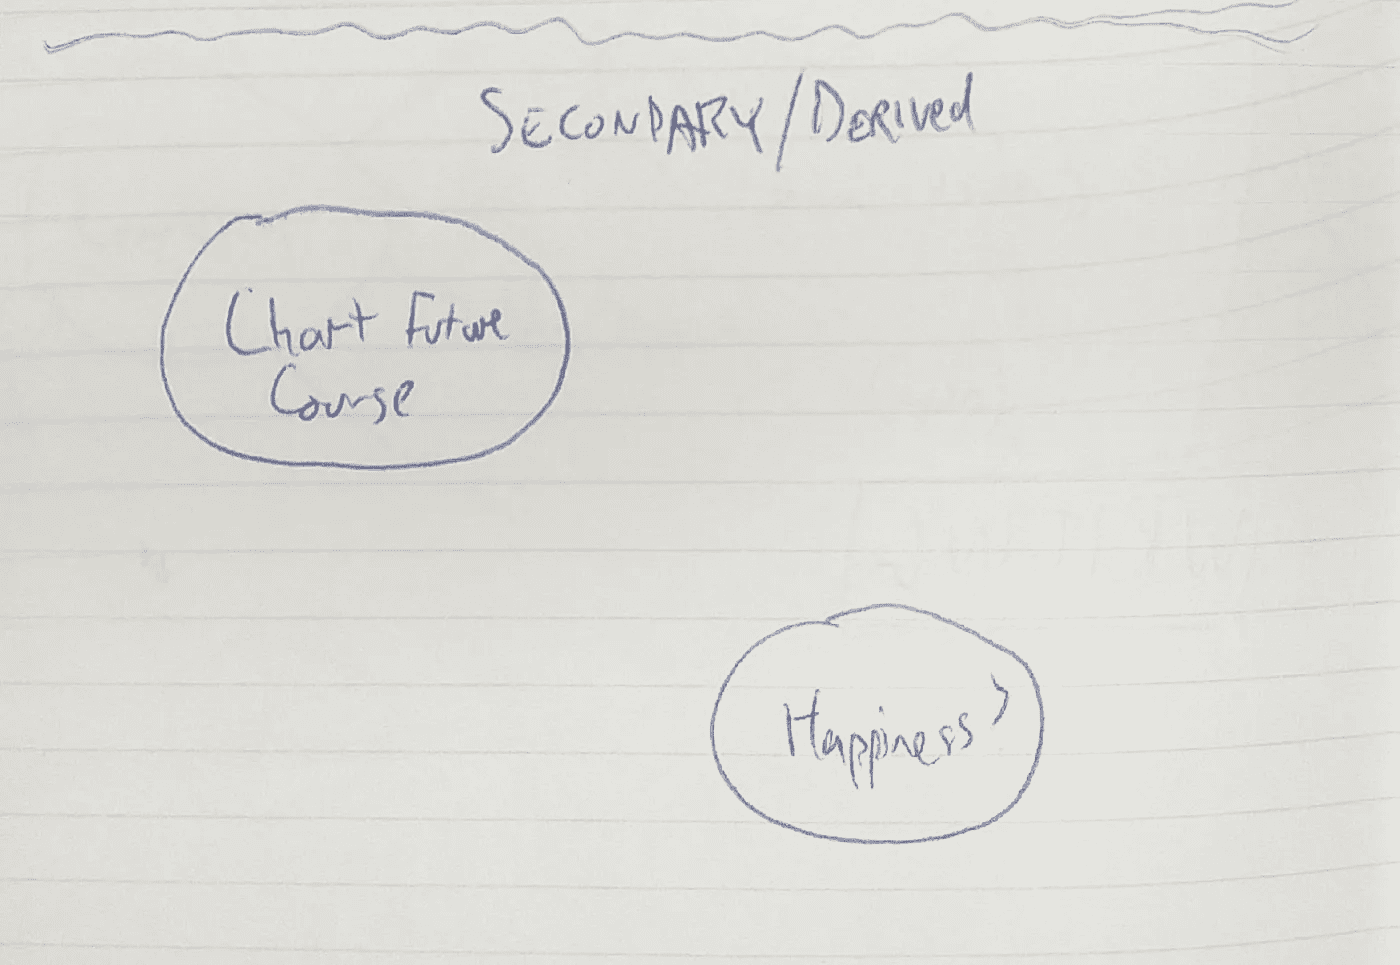 SECONDARY/DERIVed
Chart Future
Course
Happiness